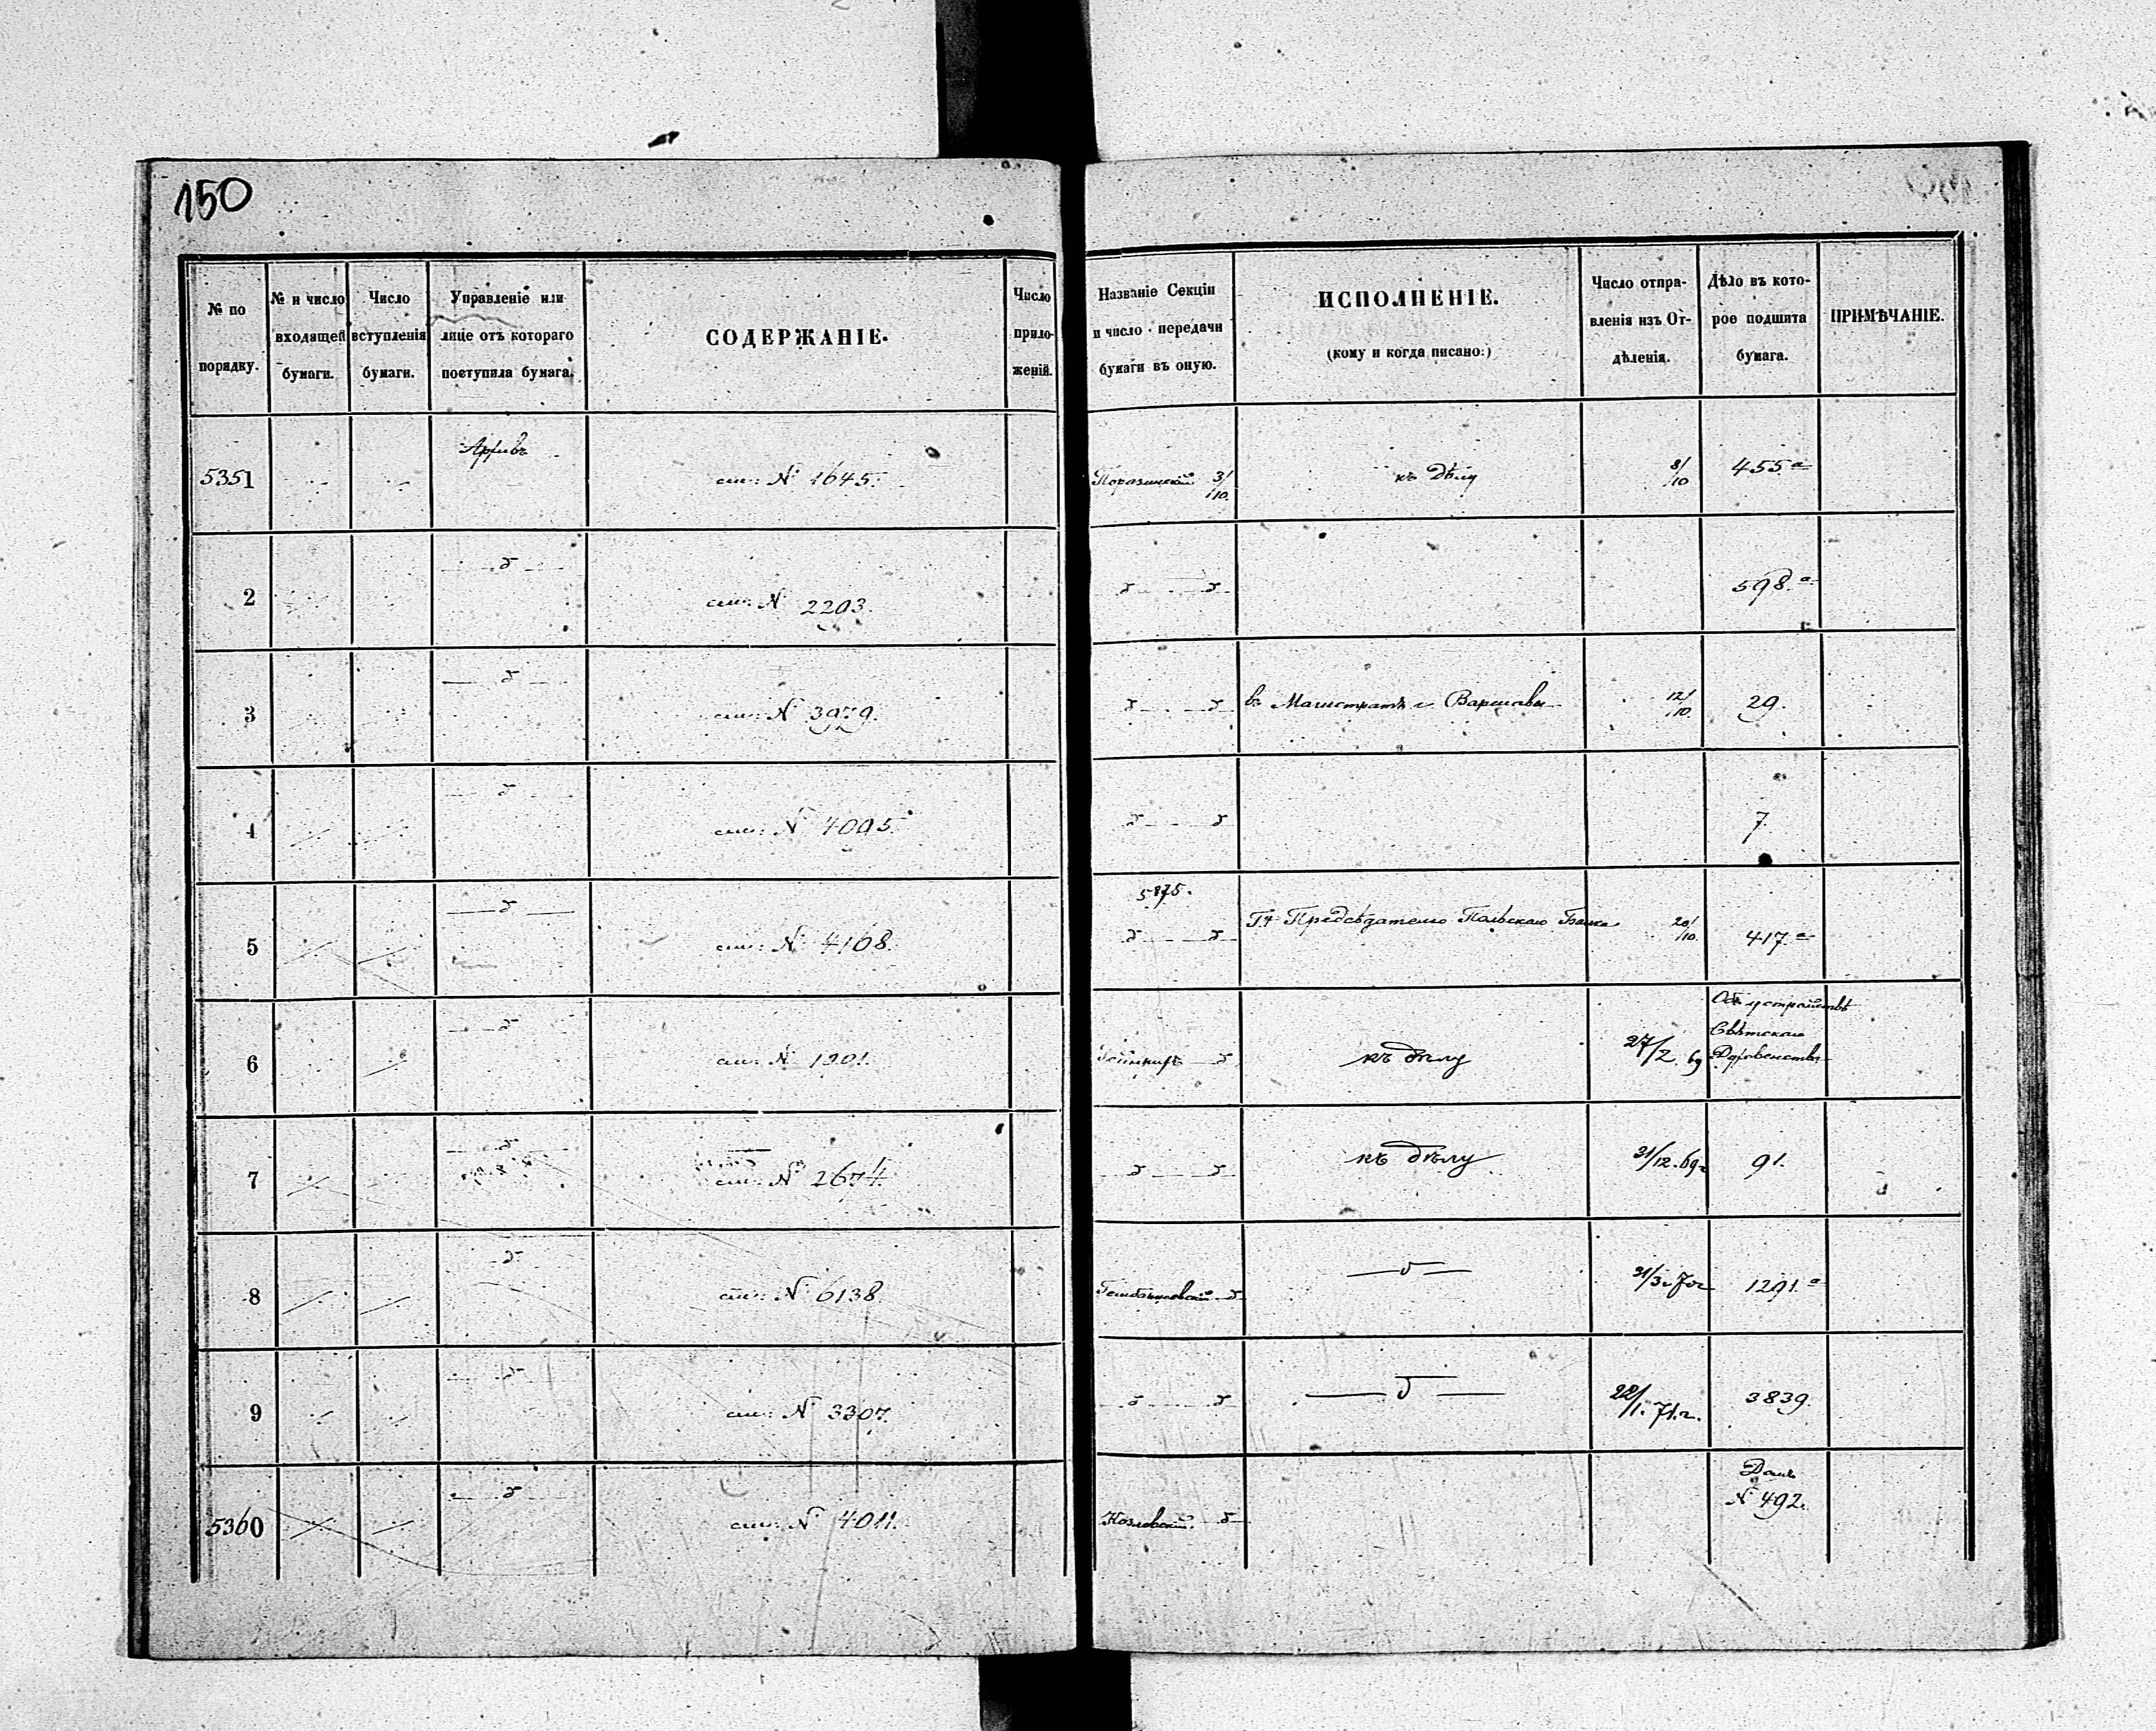 150
№ по порядку.
№ и число входящей бумаги.
Число вступленія бумаги.
Управленіе или лице отъ котораго поступила бумага.
СОДЕРЖАНІЕ.
Число приложеній.
Названіе Секціи и число передачи бумаги въ оную.
ИСПОЛНЕНІЕ.
(кому и когда писано:)
Число отправленія изъ Отдѣленія.
Дѣло въ которое подшита бумага.
ПРИМѢЧАНІЕ.
5351 Архивъ см: № 1645. 3/10. къ Дѣлу 8/10 455а
2 — д — см: № 2203. д — д 598.а
3 — д — см: № 3979. д — д въ Магистратъ г Варшавы 12/10. 29.
4 — д — см: № 4095. д — д 7.
5 — д — см: № 4168. 5875. д — д Гг Предсѣдателю Польскаго Банка 20/10. 417.а
6 — д — см: № 1901. — д къ дѣлу 27/2. 69 Объ устройствѣ Свѣтскаго Духовенства
7 — д — см: № 2674. д — д къ дѣлу 31/12. 69г 91.
8 — д — см: № 6138. — д — д — 31/3. 70г 1291.а
9 — д — см: № 3307. д — д — д — 22/1. 71.г. 3839.
5360 — д — см: № 4011. Козловскій. — д № 492.